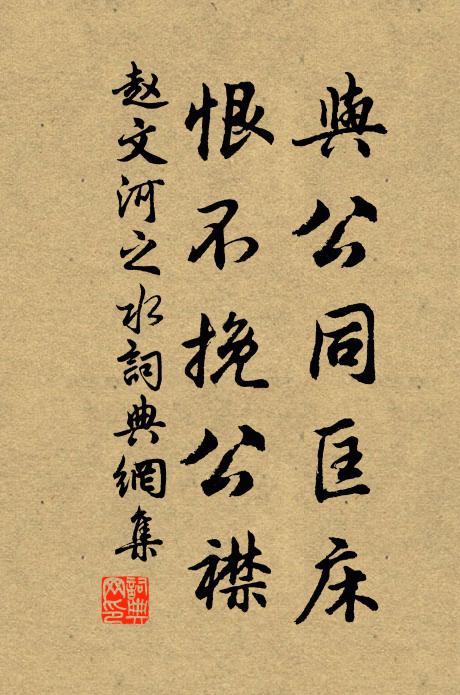 與公同匡床
恨不挽公襟
赵文河之水詞典網集
詞典網印